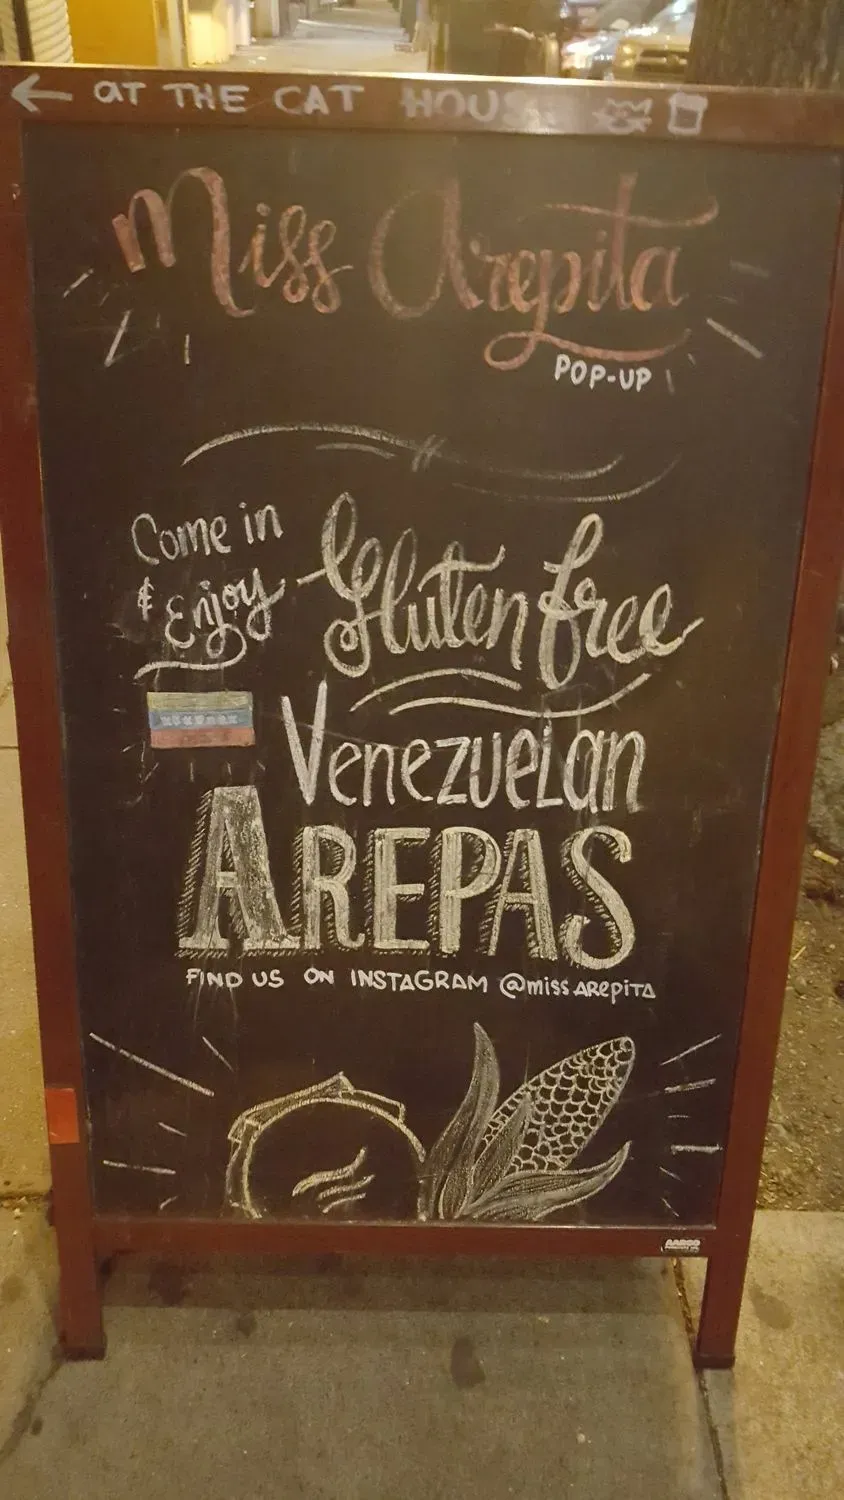 ← at THE CAT HOUSE
Miss Arepita
POP-UP
Come in
& Enjoy
Gluten free
Venezuelan
AREPAS
FIND US ON INSTAGRAM @miss.AREPITA
AARCO